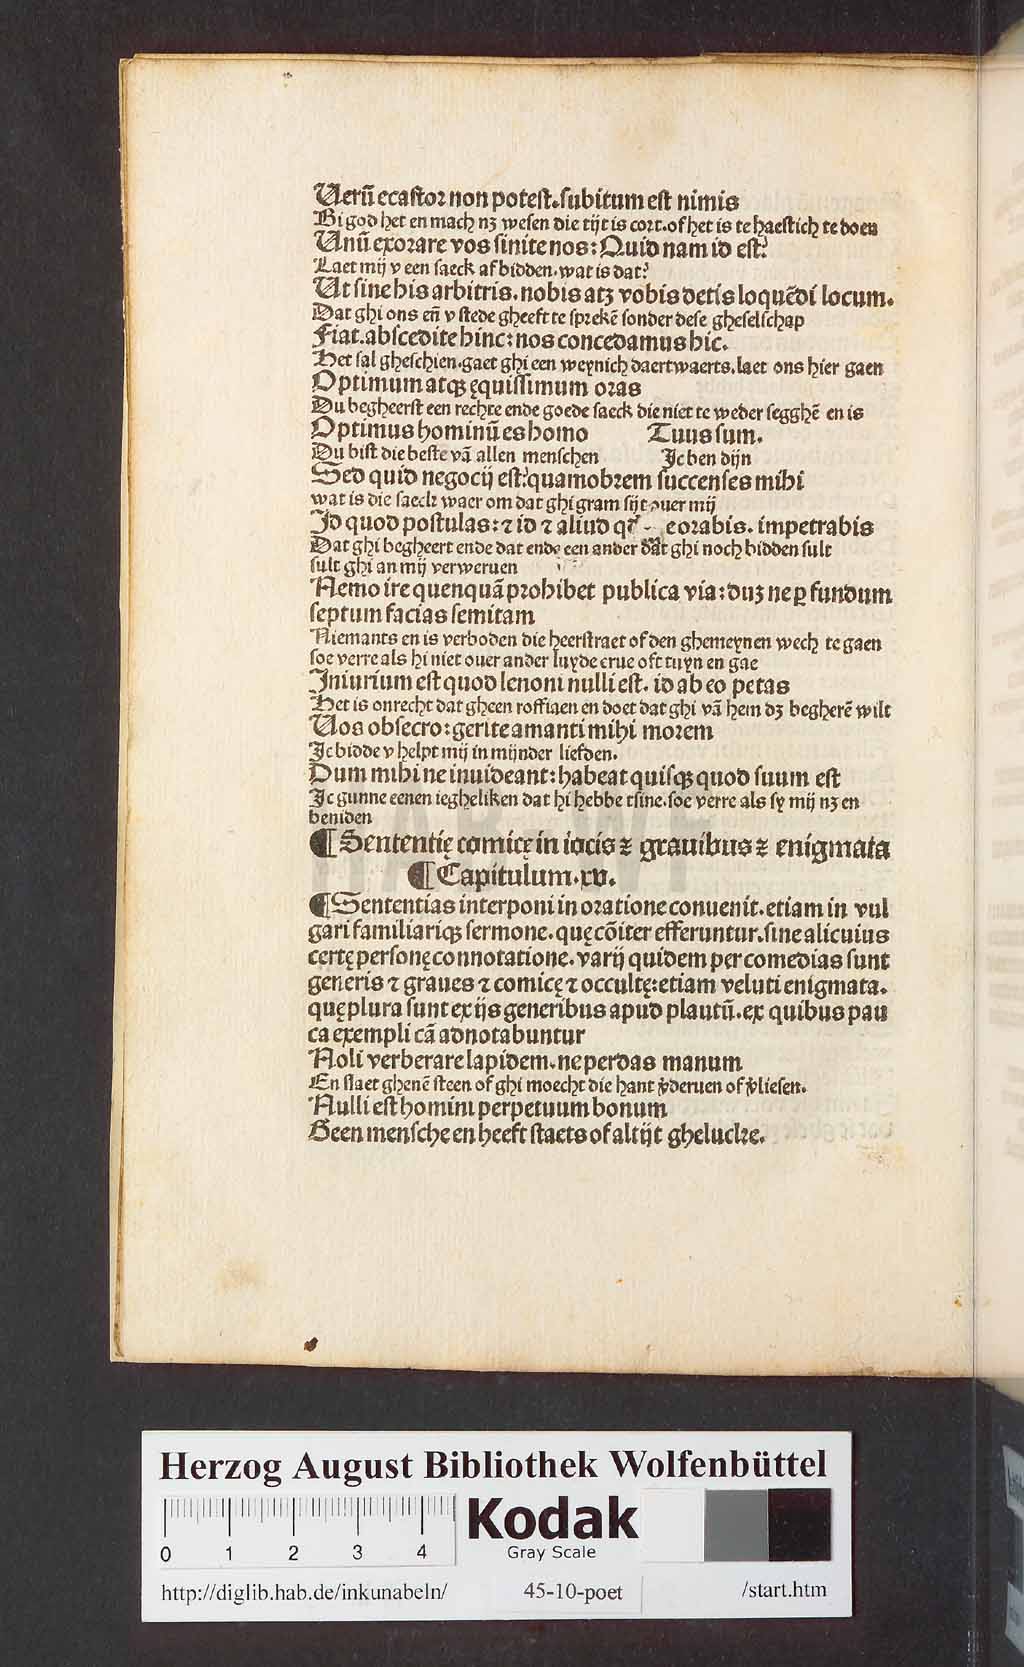 Uerũ ecastor non potest. subitum est nimis
Bi god het en mach nꝫ wesen die tijt is cort. of het is te haestich te doen
Unũ exorare vos sinite nos: Quid nam id est?
Laet mij v een saeck af bidden. wat is dat?
Ut sine his arbitris. nobis atꝫ vobis detis loquẽdi locum.
Dat ghi ons eñ v stede gheeft te sprekẽ sonder dese gheselschap
Fiat. abscedite hinc: nos concedamus hic.
Het sal gheschien. gaet ghi een weynich daertwaerts. laet ons hier gaen
Optimum atqꝫ ęquissimum oras
Du begheerst een rechte ende goede saeck die niet te weder segghẽ en is
Optimus hominũ es homo Tuus sum.
Du bist die beste vã allen menschen Jc ben dijn
Sed quid negocij est? quamobrem succenses mihi
wat is die saeck waer om dat ghi gram sijt ouer mij
Jd quod postulas: ⁊ id ⁊ aliud eorabis. impetrabis
Dat ghi begheert ende dat ende een ander dat ghi noch bidden sult
sult ghi an mij verweruen
Nemo ire quenquã prohibet publica via: duꝫ ne ꝑ fundum
septum facias semitam
Niemants en is verboden die heerstraet of den ghemeynen wech te gaen
soe verre als hi niet ouer ander luyde erue oft tuyn en gae
Jniurium est quod lenoni nulli est. id ab eo petas
Het is onrecht dat gheen roffiaen en doet dat ghi vã hem dꝫ begherẽ wilt
Uos obsecro: gerite amanti mihi morem
Jc bidde v helpt mij in mijnder liefden.
Dum mihi ne inuideant: habeat quisqꝫ quod suum est
Jc gunne eenen iegheliken dat hi hebbe tsine. soe verre als sy mij nꝫ en
beniden
¶ Sententię comicę in iocis ⁊ grauibus ⁊ enigmata
¶ Capitulum. xv.
¶ Sententias interponi in oratione conuenit. etiam in vul
gari familiariqꝫ sermone. quę cõiter efferuntur. sine alicuius
certę personę connotatione. varij quidem per comedias sunt
generis ⁊ graues ⁊ comicę ⁊ occultę: etiam veluti enigmata.
quę plura sunt ex ijs generibus apud plautũ. ex quibus pau
ca exempli cã adnotabuntur
Noli verberare lapidem. ne perdas manum
En slaet ghenẽ steen of ghi moecht die hant v̾deruen of v̾liesen.
Nulli est homini perpetuum bonum
Geen mensche en heeft staets of altijt ghelucke.
HAB • WF
Herzog August Bibliothek Wolfenbüttel
0 1 2 3 4
Kodak
Gray Scale
http://diglib.hab.de/inkunabeln/ 45-10-poet /start.htm